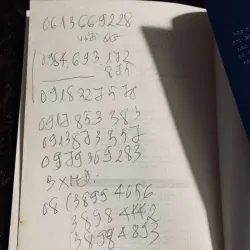 0613669228
0984693172
875
0918327578
0917853383
0913873557
0979369283
3 XMD.
08 (38994656
38984442
38984893